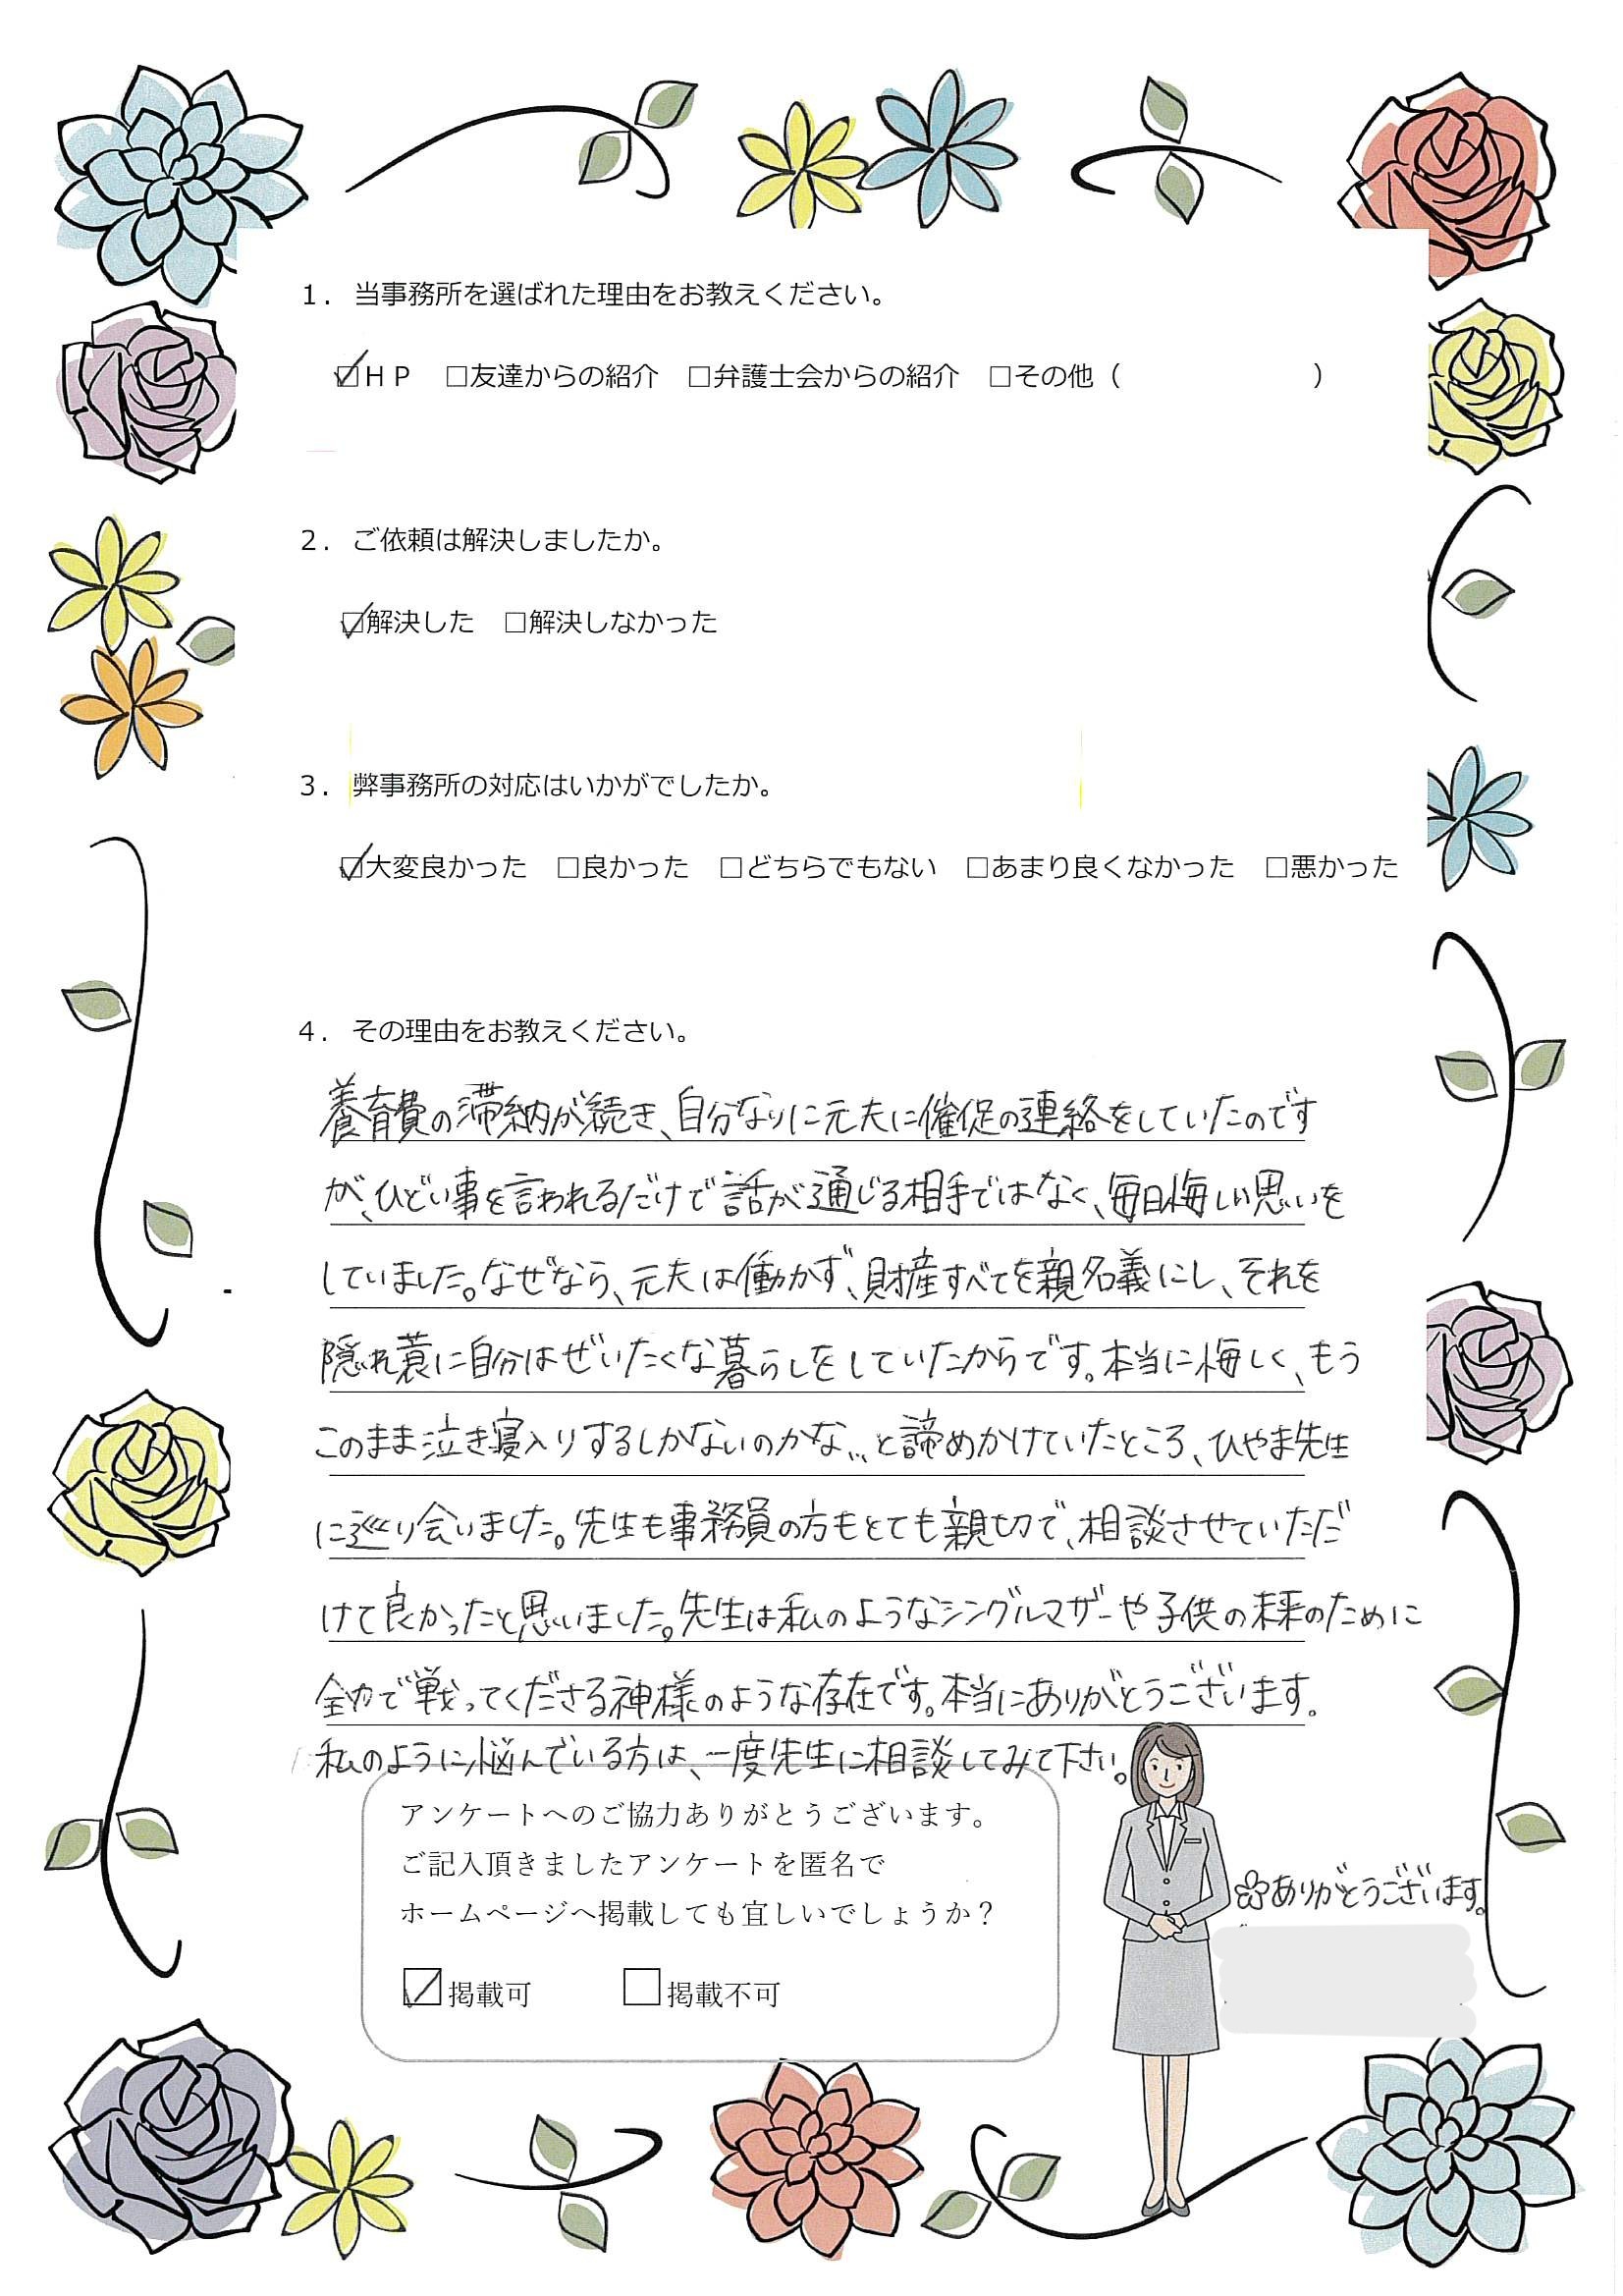 １．当事務所を選ばれた理由をお教えください。
☑ＨＰ　□友達からの紹介　□弁護士会からの紹介　□その他（　　　　　　　）
２．ご依頼は解決しましたか。
☑解決した　□解決しなかった
３．弊事務所の対応はいかがでしたか。
☑大変良かった　□良かった　□どちらでもない　□あまり良くなかった　□悪かった
４．その理由をお教えください。
養育費の滞納が続き、自分なりに元夫に催促の連絡をしていたのです
が、ひどい事を言われるだけで話が通じる相手ではなく、毎日悔しい思いを
していました。なぜなら、元夫は働かず、財産すべてを親名義にし、それを
隠れ蓑に自分はぜいたくな暮らしをしていたからです。本当に悔しく、もう
このまま泣き寝入りするしかないのかな…と諦めかけていたところ、ひやま先生
に巡り会いました。先生も事務員の方もとても親切で、相談させていただ
けて良かったと思いました。先生は私のようなシングルマザーや子供の未来のために
全力で戦ってくださる神様のような存在です。本当にありがとうございます。
私のように悩んでいる方は、一度先生に相談してみて下さい。
アンケートへのご協力ありがとうございます。
ご記入頂きましたアンケートを匿名で
ホームページへ掲載しても宜しいでしょうか？
☑掲載可　□掲載不可
ありがとうございます。